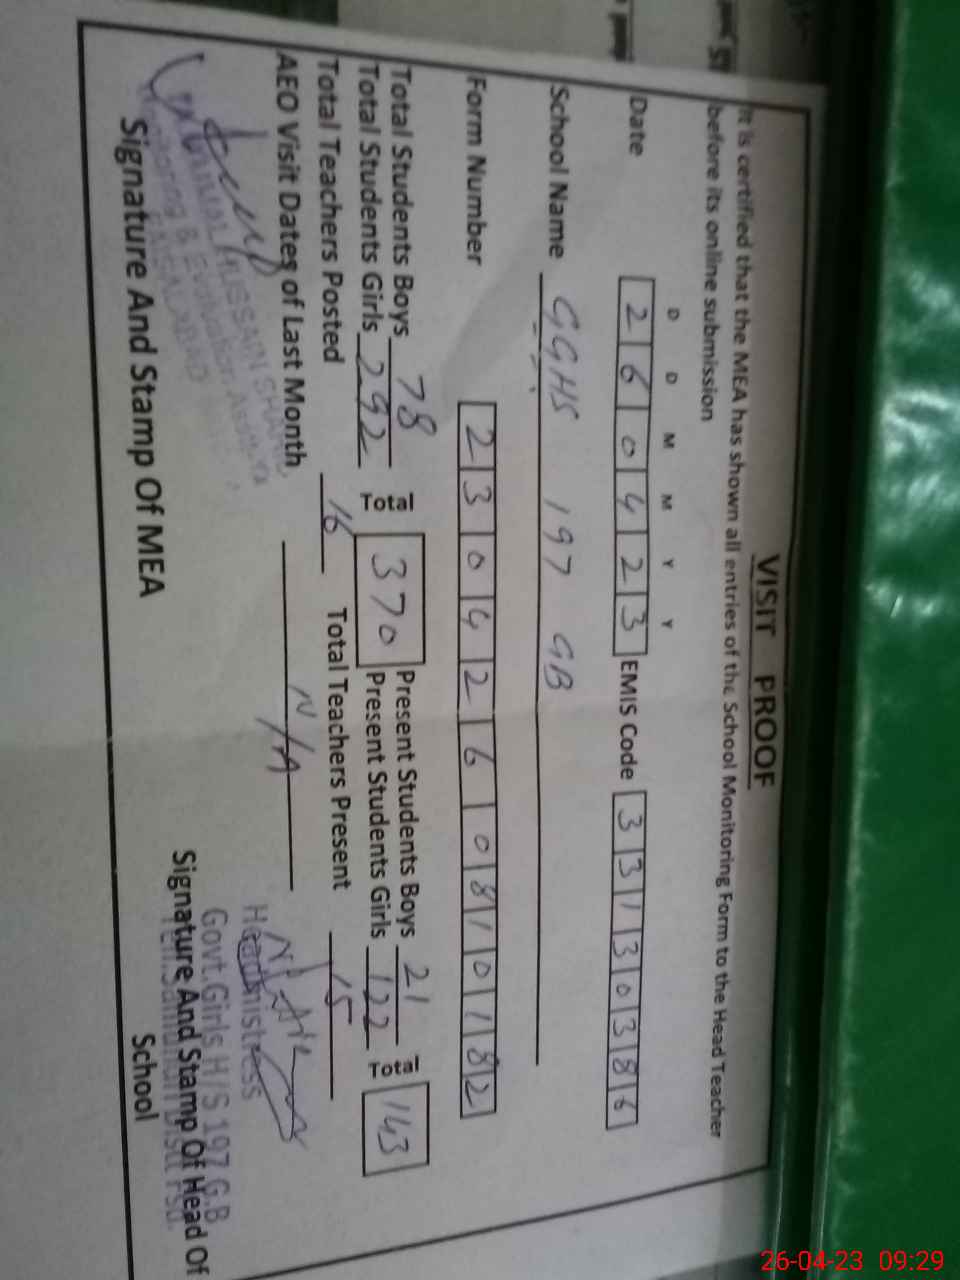 VISIT PROOF
It is certified that the MEA has shown all entries of the School Monitoring Form to the Head Teacher
before its online submission
D D M M Y Y
Date 2 6 0 4 2 3 EMIS Code 3 3 1 3 0 3 8 6
School Name GGHS 197 GB
Form Number 2 3 0 4 2 6 0 8 1 0 1 8 2
Total Students Boys 78 Total 370 Present Students Boys 21 Total 143
Total Students Girls 292 Present Students Girls 122
Total Teachers Posted 16 Total Teachers Present 15
AEO Visit Dates of Last Month N/A
HUSSAIN
Monitoring & Evaluation
FAISALABAD
Signature And Stamp Of MEA
Headmistress
Govt.Girls H/S 197 G.B
Signature And Stamp Of Head Of
School
26-04-23 09:29